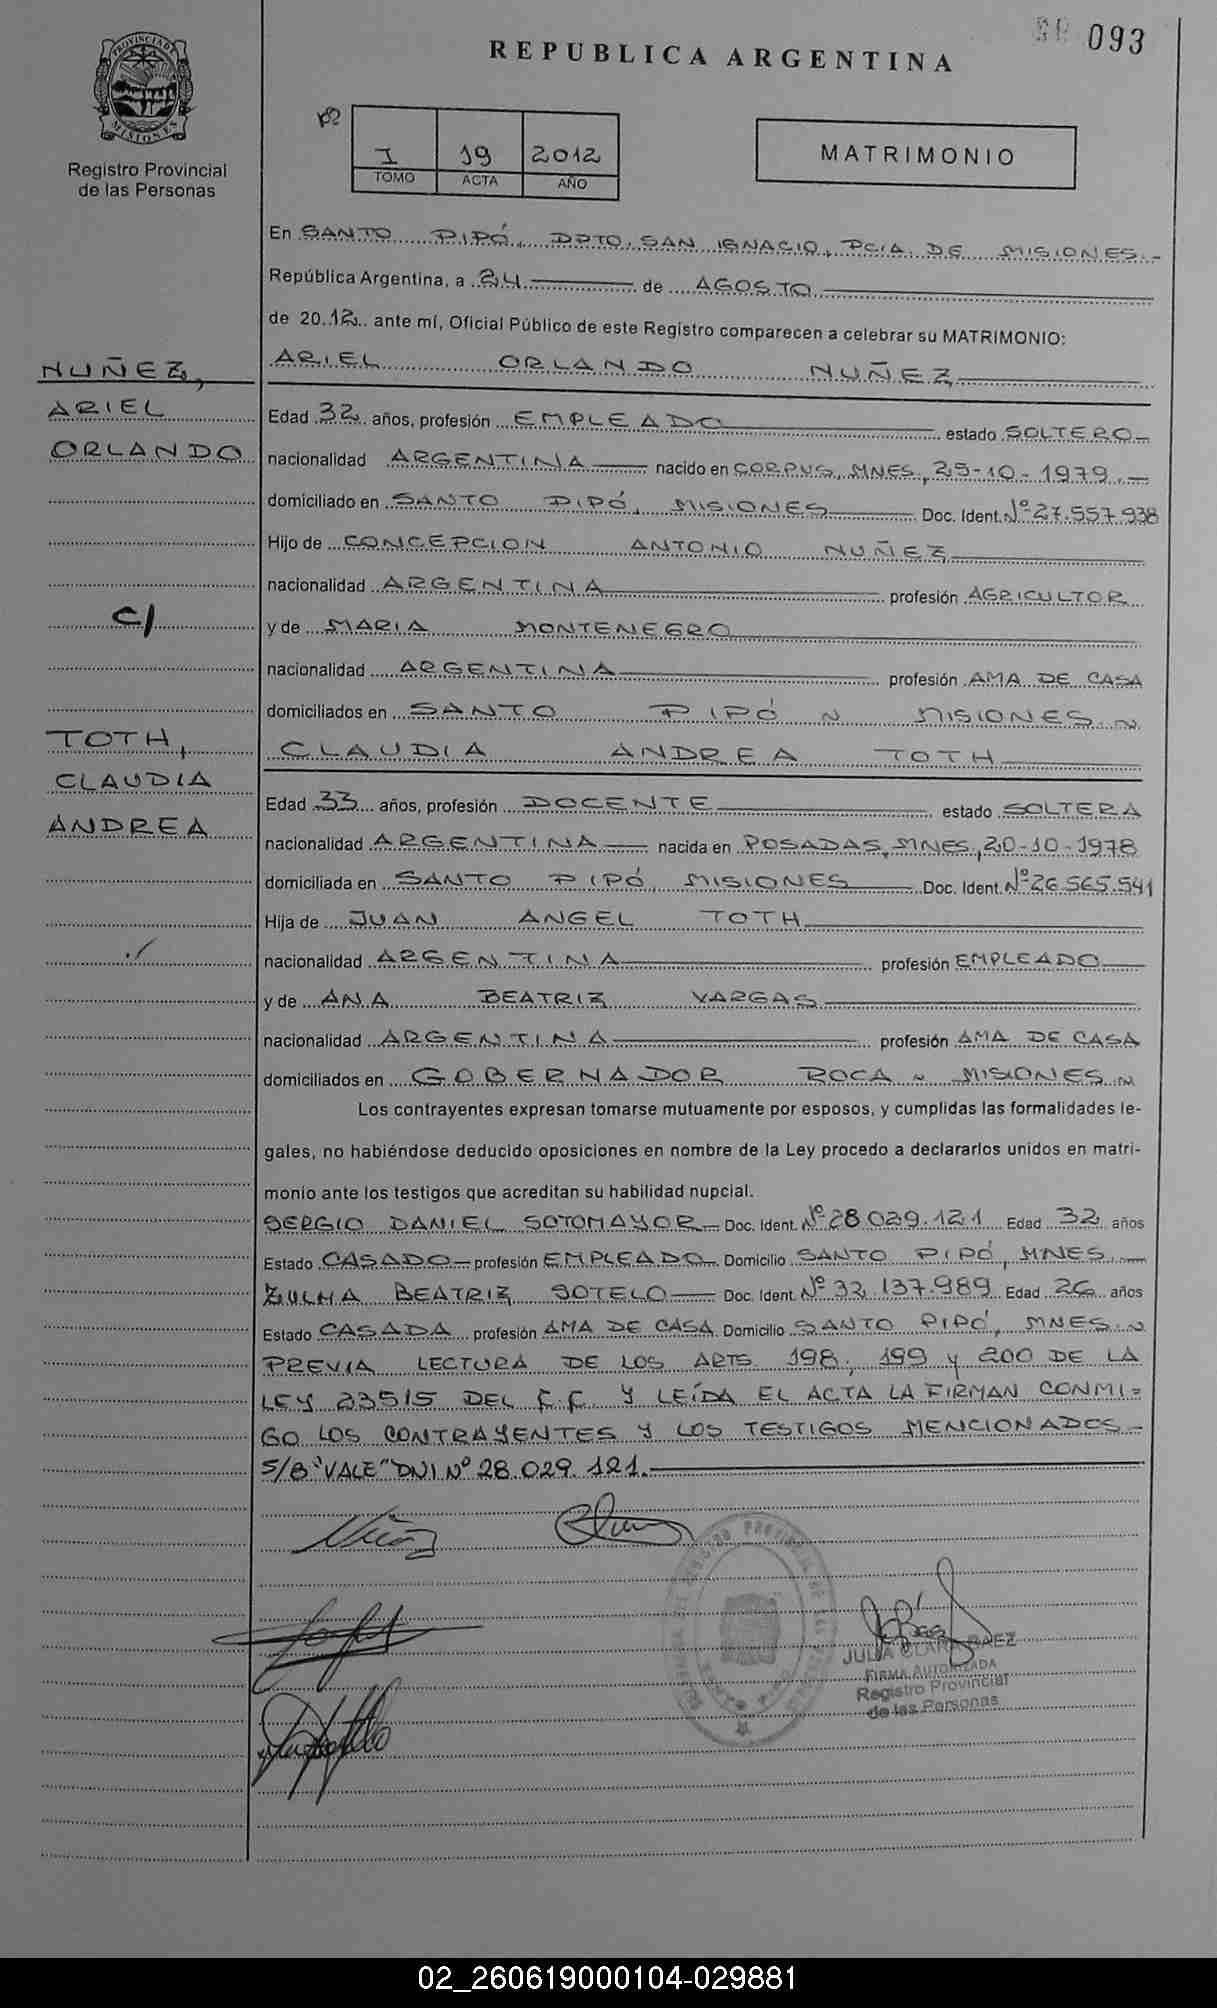 093
REPUBLICA ARGENTINA
PROVINCIA DE MISIONES
Registro Provincial
de las Personas
I 19 2012
TOMO ACTA AÑO
MATRIMONIO
En SANTO PIPÓ, DPTO. SAN IGNACIO, PCIA. DE MISIONES.-
República Argentina, a 24 de AGOSTO
de 2012 ante mí, Oficial Público de este Registro comparecen a celebrar su MATRIMONIO:
NUÑEZ,
ARIEL
ORLANDO
C/
TOTH,
CLAUDIA
ANDREA
ARIEL ORLANDO NUÑEZ
Edad 32 años, profesión EMPLEADO estado SOLTERO
nacionalidad ARGENTINA nacido en CORPUS, MNES, 25-10-1979.-
domiciliado en SANTO PIPÓ, MISIONES Doc. Ident. Nº 27.557.938
Hijo de CONCEPCION ANTONIO NUÑEZ
nacionalidad ARGENTINA profesión AGRICULTOR
y de MARIA MONTENEGRO
nacionalidad ARGENTINA profesión AMA DE CASA
domiciliados en SANTO PIPÓ ~ MISIONES ~
CLAUDIA ANDREA TOTH
Edad 33 años, profesión DOCENTE estado SOLTERA
nacionalidad ARGENTINA nacida en POSADAS, MNES, 20-10-1978
domiciliada en SANTO PIPÓ, MISIONES Doc. Ident. Nº 26.565.541
Hija de JUAN ANGEL TOTH
nacionalidad ARGENTINA profesión EMPLEADO
y de ANA BEATRIZ VARGAS
nacionalidad ARGENTINA profesión AMA DE CASA
domiciliados en GOBERNADOR ROCA ~ MISIONES ~
Los contrayentes expresan tomarse mutuamente por esposos, y cumplidas las formalidades le-
gales, no habiéndose deducido oposiciones en nombre de la Ley procedo a declararlos unidos en matri-
monio ante los testigos que acreditan su habilidad nupcial.
SERGIO DANIEL SOTOMAYOR Doc. Ident. Nº 28.029.121 Edad 32 años
Estado CASADO profesión EMPLEADO Domicilio SANTO PIPÓ, MNES.
ZULMA BEATRIZ SOTELO Doc. Ident. Nº 32.137.989 Edad 26 años
Estado CASADA profesión AMA DE CASA Domicilio SANTO PIPÓ, MNES. ~
PREVIA LECTURA DE LOS ARTS. 198, 199 y 200 DE LA
LEY 23515 DEL C.C. Y LEÍDA EL ACTA LA FIRMAN CONMI=
GO LOS CONTRAYENTES Y LOS TESTIGOS MENCIONADOS-
S/B "VALE" DNI Nº 28.029.121.
JULIA CLARA BAEZ
FIRMA AUTORIZADA
Registro Provincial
de las Personas
02_260619000104-029881